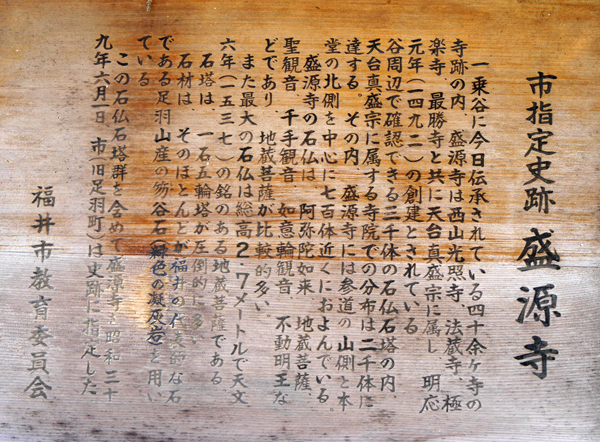 市指定史跡 盛源寺
一乗谷に今日伝承されている四十余ケ寺の
寺跡の内、盛源寺は西山光照寺、法蔵寺、極
楽寺、最勝寺と共に天台真盛宗に属し、明応
元年(一四九二)の創建とされている。
谷周辺で確認できる三千体の石仏石塔の内、
天台真盛宗に属する寺院での分布は二千体に
達する。その内、盛源寺には参道の山側と本
堂の北側を中心に七百体近くにおよんでいる。
盛源寺の石仏は、阿弥陀如来、地蔵菩薩、
聖観音、千手観音、如意輪観音、不動明王な
どであり、地蔵菩薩が比較的多い。
また最大の石仏は総高2.7メートルで天文
六年(一五三七)の銘のある地蔵菩薩である。
石塔は、一石五輪塔が圧倒的に多い。
石材は、そのほとんどが福井の代表的な石
である足羽山産の笏谷石(緑色の凝灰岩)を用い
ている。
この石仏石塔群を含めて盛源寺を昭和三十
九年六月一日、市(旧足羽町)は史跡に指定した
福井市教育委員会